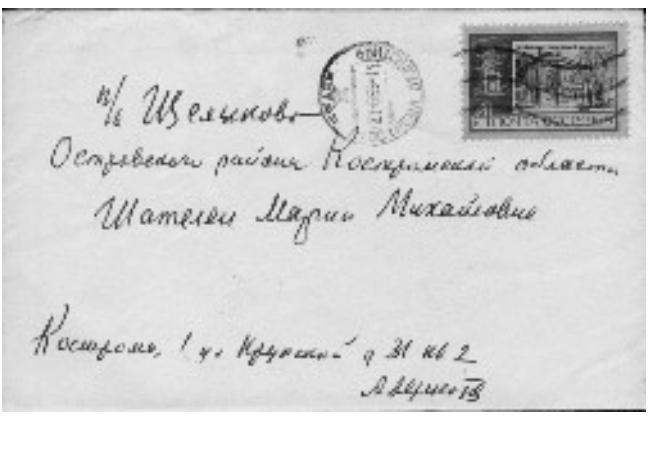 п/о Щелыково
Островского района Костромской области
Шателен Марии Михайловне
Кострома, 1 ул Крупской д 31 кв 2
ПОЧТА СССР